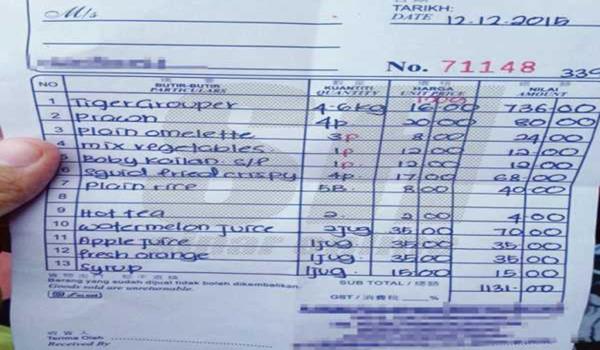 M/s
TARIKH:
DATE 12.12.2015
No. 71148 339
NO BUTIR-BUTIR PARTICULARS KUANTITI QUANTITY HARGA UNIT PRICE NILAI AMOUNT
1 Tiger Grouper 4.6kg 16.00 736.00
2 Prawn 4p 20.00 80.00
3 Plain omelette 3p 8.00 24.00
4 mix vegetables 1p 12.00 12.00
5 Baby Kailan s/p 1p 12.00 12.00
6 Squid fried crispy 4p 17.00 68.00
7 Plain rice 5B 8.00 40.00
8
9 Hot tea 2 2.00 4.00
10 watermelon juice 2jug 35.00 70.00
11 Apple juice 1jug 35.00 35.00
12 fresh orange 1jug 35.00 35.00
13 Syrup 1jug 15.00 15.00
SUB TOTAL / 总结 1131.00
Barang yang sudah dijual tidak boleh dikembalikan.
Goods sold are unreturnable.
GST / 消費稅 %
Terima Oleh
Received By